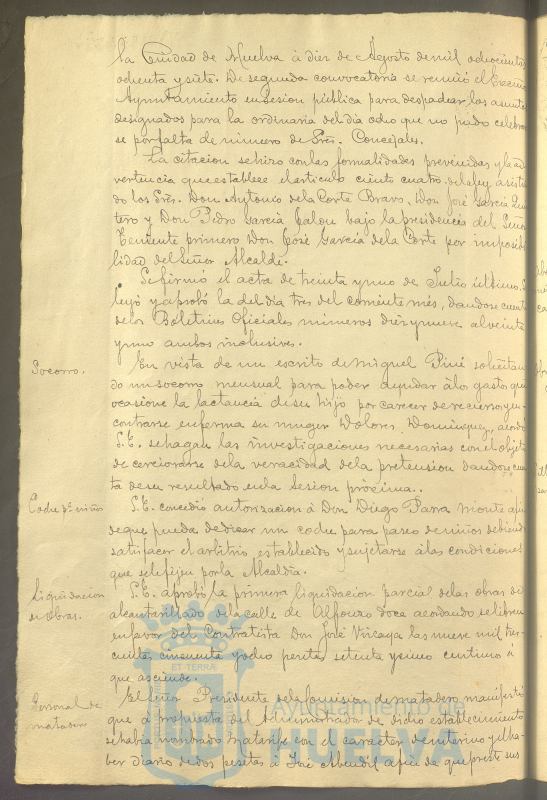 la Ciudad de Huelva à diez de Agosto de mil ochocientos
ochenta y siete. De segunda convocatoria se reunió el Excmo
Ayuntamiento en sesion pública para despachar los asuntos
designados para la ordinaria del dia ocho que no pudo celebrar
se por falta de número de Sres. Concejales.
La citacion se hizo con las formalidades prevenidas y la ad
vertencia que establece el articulo ciento cuatro de la ley, asistien
do los Sres. Don Antonio de la Corte Bravo, Don José Garcia Quin
tero y Don Pedro Garcia Jalon bajo la presidencia del Señor
Teniente primero Don José Garcia de la Corte por imposibi
lidad del Señor Alcalde.
Se firmó el acta de treinta y uno de Julio último. Se
leyó y aprobó la del dia tres del corriente mes, dandose cuenta
de los Boletines Oficiales números diez y nueve al veinte
y uno ambos inclusives.
Socorro.
En vista de un escrito de Miguel Piné solicitan
do un socorro mensual para poder ayudar à los gastos que
ocasione la lactancia de su hijo por carecer de recursos y en
contrarse enferma su muger Dolores Dominguez, acordó
S.E. se hagan las investigaciones necesarias con el objeto
de cerciorarse de la veracidad de la pretension dandose cuen
ta de su resultado en la sesion próxima.
Coche pª niños
S.E. concedió autorizacion à Don Diego Parra Monte a fin
de que pueda dedicar un coche para paseo de niños debiendo
satisfacer el arbitrio establecido y sujetarse à las condiciones
que se le fijen por la Alcaldia.
Liquidacion
de Obras.
S.E. aprobó la primera liquidacion parcial de las obras de
alcantarillado de la calle de Alfonso doce acordando se libren
en favor del Contratista Don José Vizcaya las nueve mil tres-
cientas cincuenta y ocho pesetas setenta y cinco centimos à
que asciende.
Personal de
matadero
El Señor Presidente de la Comision de matadero, manifestó
que à propuesta del Administrador de dicho establecimiento
se habia nombrado matarife con el caracter de interino y el ha-
ber diario de dos pesetas à José Abendil a fin de que preste sus
ET TERRÆ
Ayuntamiento de
HUELVA